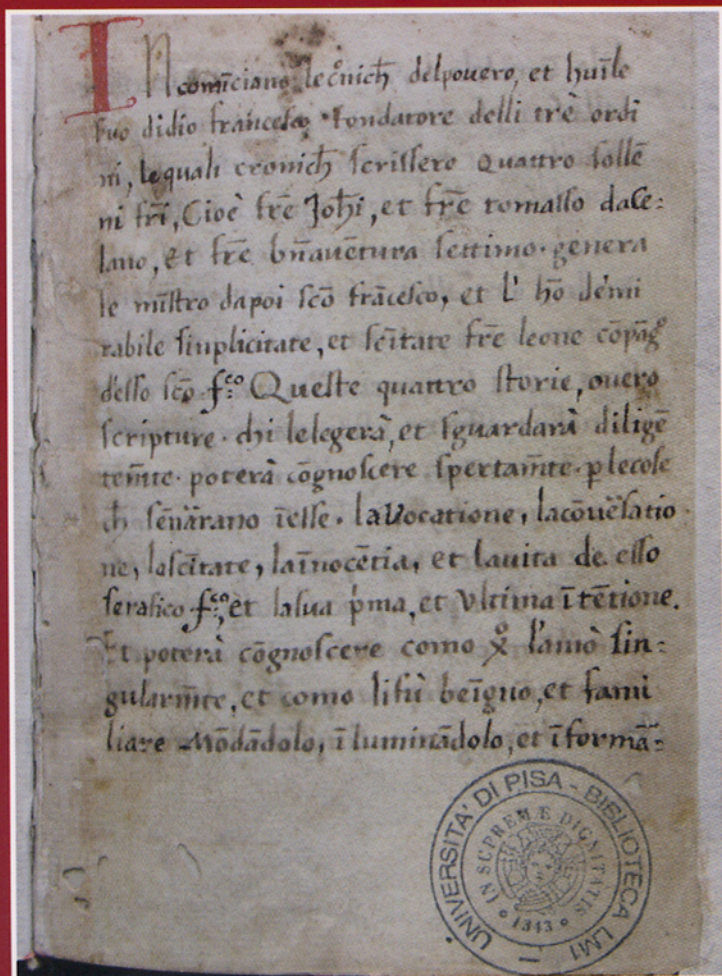 INcomīciano le cronich̄ delpouero, et huīle
suo didio francesco fondatore delli trè ordi
ni, lequali cronich̄ scrissero quattro sollē
ni frī, Cioè frē Joh̄i, et frē tomasso dace:
lano, et frē bn̄auētura settimo. genera
le mīstro dapoi scō frācesco, et l' hō de mi
rabile simplicitate, et scītate frē leone cōpāg̊
desso scō f.co Queste quattro storie, ouero
scripture. chi lelegerà, et sguardarà diligē
tem̄te. poterà cōgnoscere spertam̄te. p lecose
ch̄ īesse. la Vocatione, lacōuēsatio
ne, lascītate, laīnocētia, et lauita de esso
serafico f.co, et lasua pͥma, et Vltima ītētione.
Et poterà cōgnoscere como l'amò sin:
gularm̄te, et como lifù beīguo, et fami
liare Mōdādolo, īluminādolo, et īformā:
UNIVERSITA' DI PISA - BIBLIOTECA LM1
IN SUPREMÆ DIGNITATIS
1343